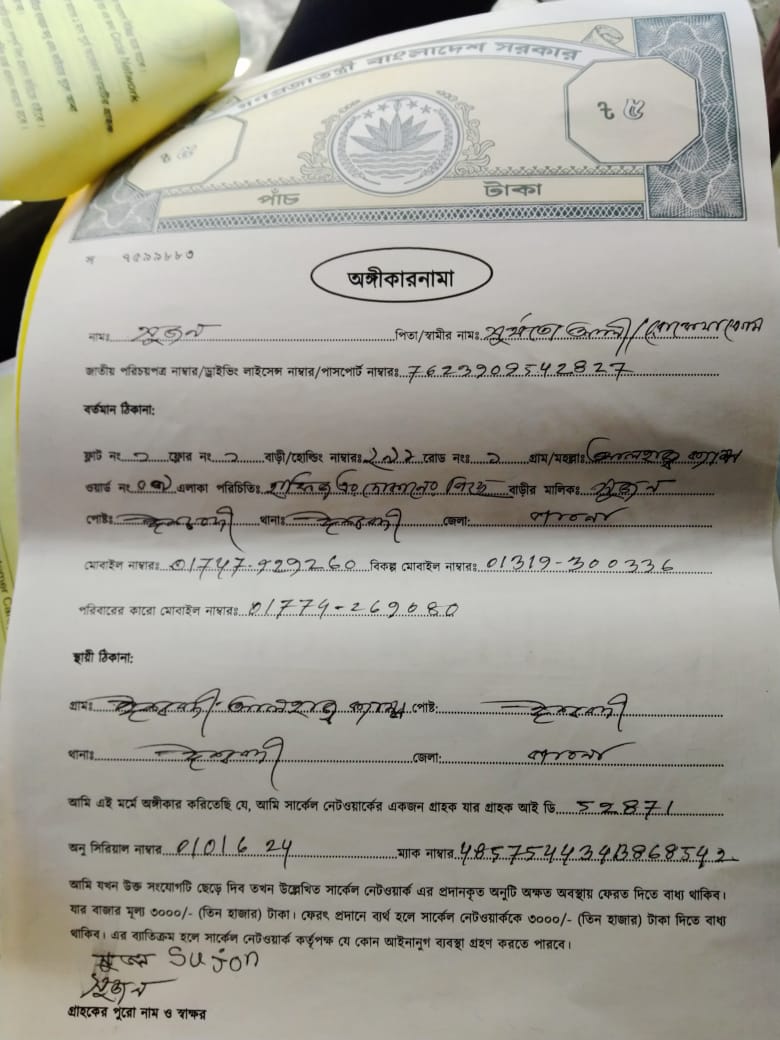 Circle Network
গনপ্রজাতন্ত্রী বাংলাদেশ সরকার
৳ ৫
৳ ৫
পাঁচ টাকা
স ৭৫৯৯৮৮৩
অঙ্গীকারনামা
নামঃ সুজন পিতা/স্বামীর নামঃ
জাতীয় পরিচয়পত্র নাম্বার/ড্রাইভিং লাইসেন্স নাম্বার/পাসপোর্ট নাম্বারঃ 7623909542827
বর্তমান ঠিকানা:
ফ্লাট নং ফ্লোর নং বাড়ী/হোল্ডিং নাম্বারঃ রোড নংঃ গ্রাম/মহল্লাঃ
ওয়ার্ড নং এলাকা পরিচিতিঃ বাড়ীর মালিকঃ সুজন
পোষ্টঃ ঈশ্বরদী থানাঃ ঈশ্বরদী জেলা: পাবনা
মোবাইল নাম্বারঃ 01747-929260 বিকল্প মোবাইল নাম্বারঃ 01319-300336
পরিবারের কারো মোবাইল নাম্বারঃ 01774-269080
স্থায়ী ঠিকানা:
গ্রামঃ ঈশ্বরদী পোষ্ট: ঈশ্বরদী
থানাঃ ঈশ্বরদী জেলা: পাবনা
আমি এই মর্মে অঙ্গীকার করিতেছি যে, আমি সার্কেল নেটওয়ার্কের একজন গ্রাহক যার গ্রাহক আই ডি 52871
অনু সিরিয়াল নাম্বার 0101624 ম্যাক নাম্বার
আমি যখন উক্ত সংযোগটি ছেড়ে দিব তখন উল্লেখিত সার্কেল নেটওয়ার্ক এর প্রদানকৃত অনুটি অক্ষত অবস্থায় ফেরত দিতে বাধ্য থাকিব।
যার বাজার মূল্য ৩০০০/- (তিন হাজার) টাকা। ফেরৎ প্রদানে ব্যর্থ হলে সার্কেল নেটওয়ার্ককে ৩০০০/- (তিন হাজার) টাকা দিতে বাধ্য
থাকিব। এর ব্যতিক্রম হলে সার্কেল নেটওয়ার্ক কর্তৃপক্ষ যে কোন আইনানুগ ব্যবস্থা গ্রহণ করতে পারবে।
সুজন Sujon
সুজন
গ্রাহকের পুরো নাম ও স্বাক্ষর